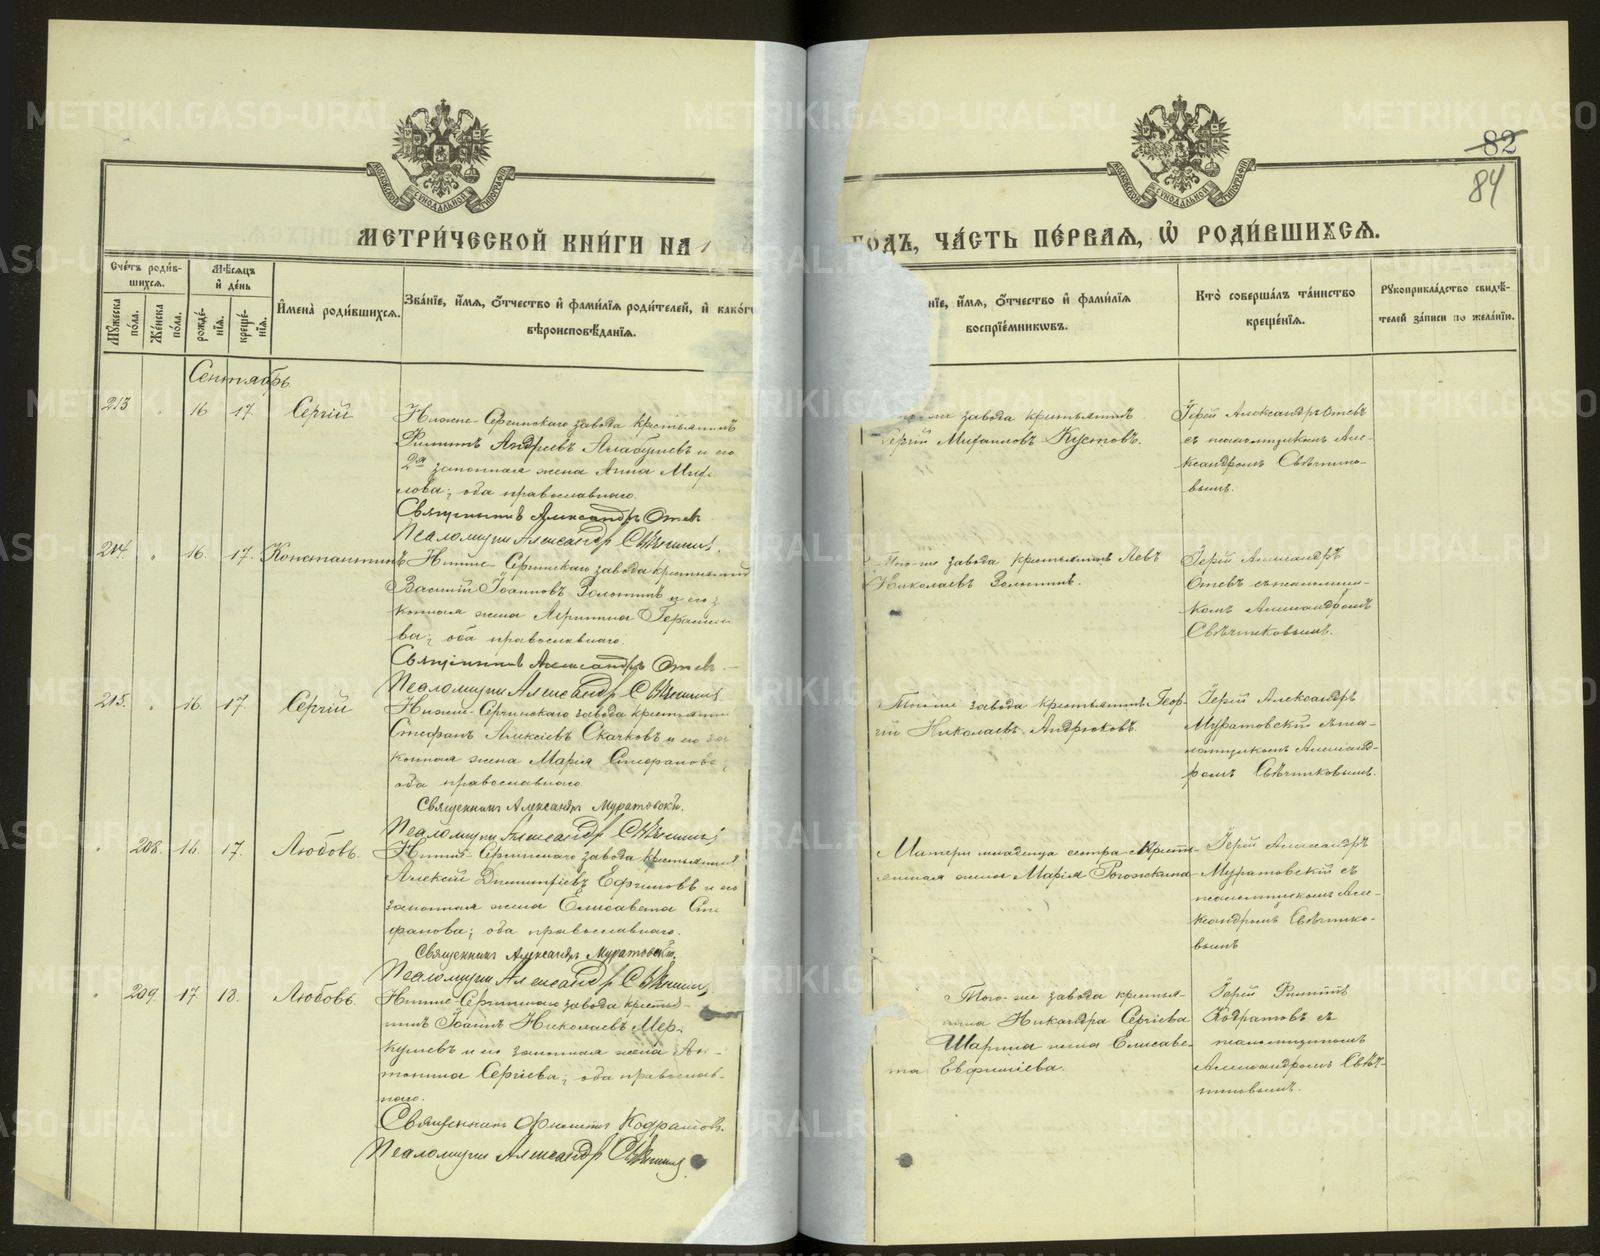 82
84
МЕТРИ́ЧЕСКОЙ КНИ́ГИ НА 1
ГО́ДЪ, ЧА́СТЬ ПЕ́РВАЯ, Ѡ҆ РОДИ́ВШИХСЯ.
Сче́тъ роди́в-
шихся.
Мꙋ́жеска по́ла.
Же́нска по́ла.
Мѣ́сяцъ
и҆ де́нь
рожде́-
нїя.
креще́-
нїя.
И҆мена̀ роди́вшихся.
Зва́нїе, и҆́мя, ѻ҆́тчество и҆ фами́лїя роди́телей, и҆ како́гѡ
вѣроисповѣ́данїя.
нїе, и҆́мя, ѻ҆́тчество и҆ фами́лїя
воспрїе́мникѡвъ.
Кто̀ соверша́лъ та́инство
креще́нїя.
Рꙋкоприкла́дство свидѣ́-
телей за́писи по жела́нїю.
Сентябрь.
213 16 17. Сергій
Нижне-Сергинскаго завода крестьянинъ
Филиппъ Андреевъ Алабушевъ и его
2я законная жена Анна
лова; оба православнаго.
Священникъ Александръ Отевъ
Псаломщикъ Александръ Свѣчниковъ.
завода крестьянинъ
Сергій Михаиловъ Кустовъ.
Іерей Александръ Отевъ
съ псаломщикомъ Але-
ксандромъ Свѣчнико-
вымъ.
214. 16. 17. Константинъ
Нижне-Сергинскаго завода крестьянинъ
Василій Іоанновъ Золотинъ и его з
конная жена Агриппина Герасимо
ва; оба православнаго.
Священникъ Александръ Отевъ.
Псаломщикъ Александръ Свѣчниковъ
Того-же завода крестьянинъ Левъ
Николаевъ Золотинъ.
Іерей Александръ
Отевъ съ псаломщи-
комъ Александромъ
Свѣчниковымъ.
215. 16. 17. Сергій
Нижне-Сергинскаго завода крестьянинъ
Стефанъ Алексіевъ Скачковъ и его за
конная жена Марія Стефанова;
оба православнаго.
Священникъ Александръ Муратовскій.
Псаломщикъ Александръ Свѣчниковъ
Того-же завода крестьянинъ Геор-
гій Николаевъ Андрюковъ.
Іерей Александръ
Муратовскій съ пса-
ломщикомъ Александ-
ромъ Свѣчниковымъ.
208. 16. 17. Любовь.
Нижне-Сергинскаго завода крестьянинъ
Алексій Димитріевъ Ефимовъ и его
законная жена Елисавета Сте
фанова; оба православнаго.
Священникъ Александръ Муратовскій.
Псаломщикъ Александръ Свѣчниковъ
Матери младенца сестра кресть-
янская жена Марія Рогожкина
Іерей Александръ
Муратовскій съ
псаломщикомъ Але-
ксандромъ Свѣчнико-
вымъ
209. 17. 18. Любовь.
Нижне-Сергинскаго завода кресть-
янинъ Іоаннъ Николаевъ Мер-
кушевъ и его законная жена Ан-
тонина Сергіева; оба православ-
наго.
Священникъ Филиппъ Кодратовъ.
Псаломщикъ Александръ Свѣчниковъ
Того-же завода крестья-
нина Никандра Сергіева
Шарина жена Елисаве-
та Евфиміева.
Іерей Филиппъ
Кодратовъ съ
псаломщикомъ
Александромъ Свѣч-
никовымъ.
METRIKI.GASO-URAL.RU